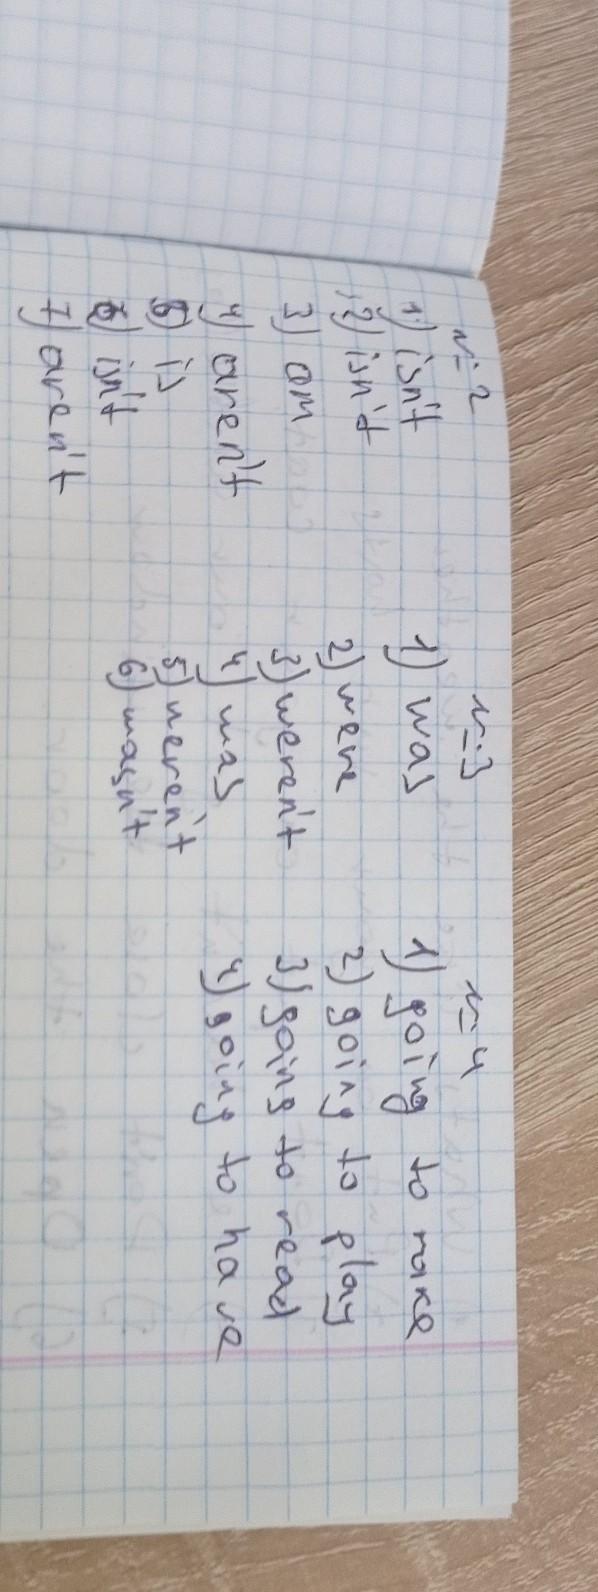 №2
1) isn't
2) isn't
3) am
4) aren't
5) is
6) isn't
7) aren't
№3
1) was
2) were
3) weren't
4) was
5) weren't
6) wasn't
№4
1) going to make
2) going to play
3) going to read
4) going to have